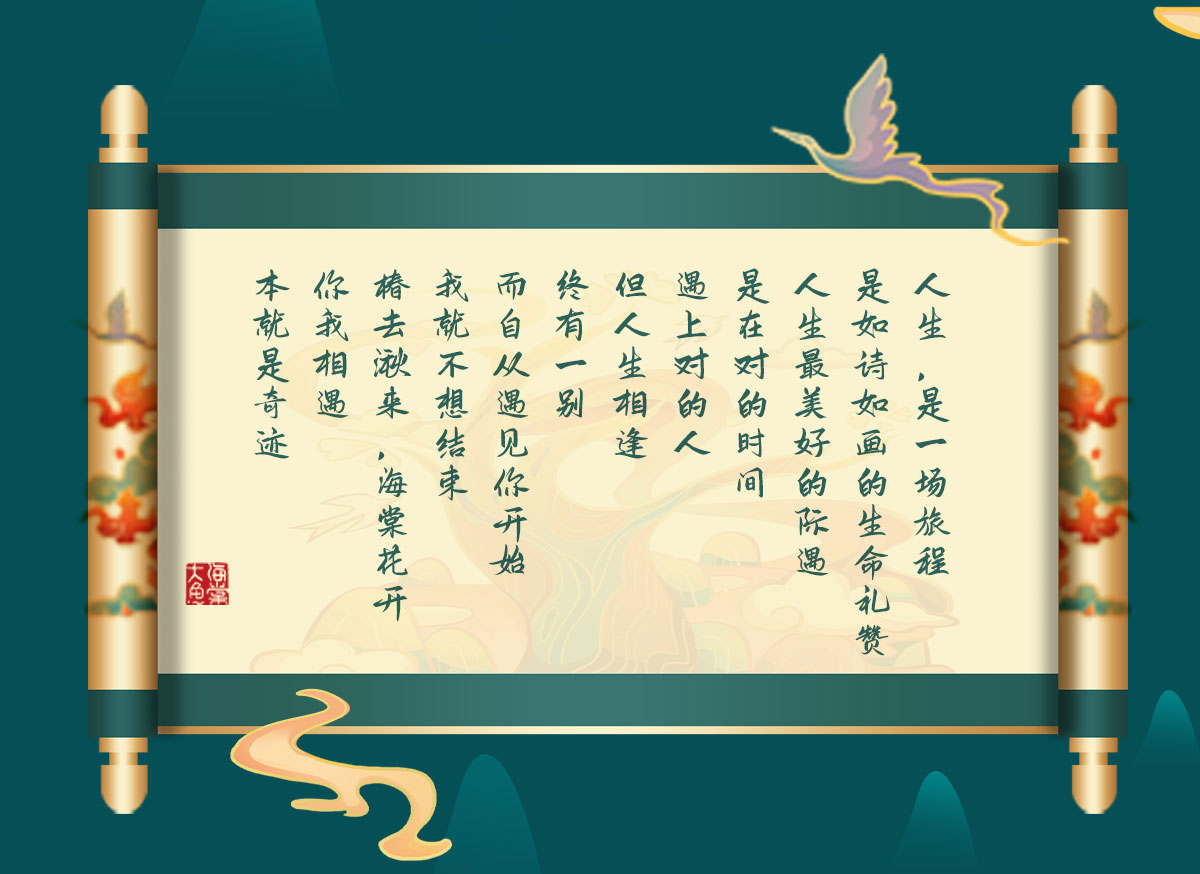 人生,是一场旅程
是如诗如画的生命礼赞
人生最美好的际遇
是在对的时间
遇上对的人
但人生相逢
终有一别
而自从遇见你开始
我就不想结束
椿去湫来,海棠花开
你我相遇
本就是奇迹
海棠
大鱼